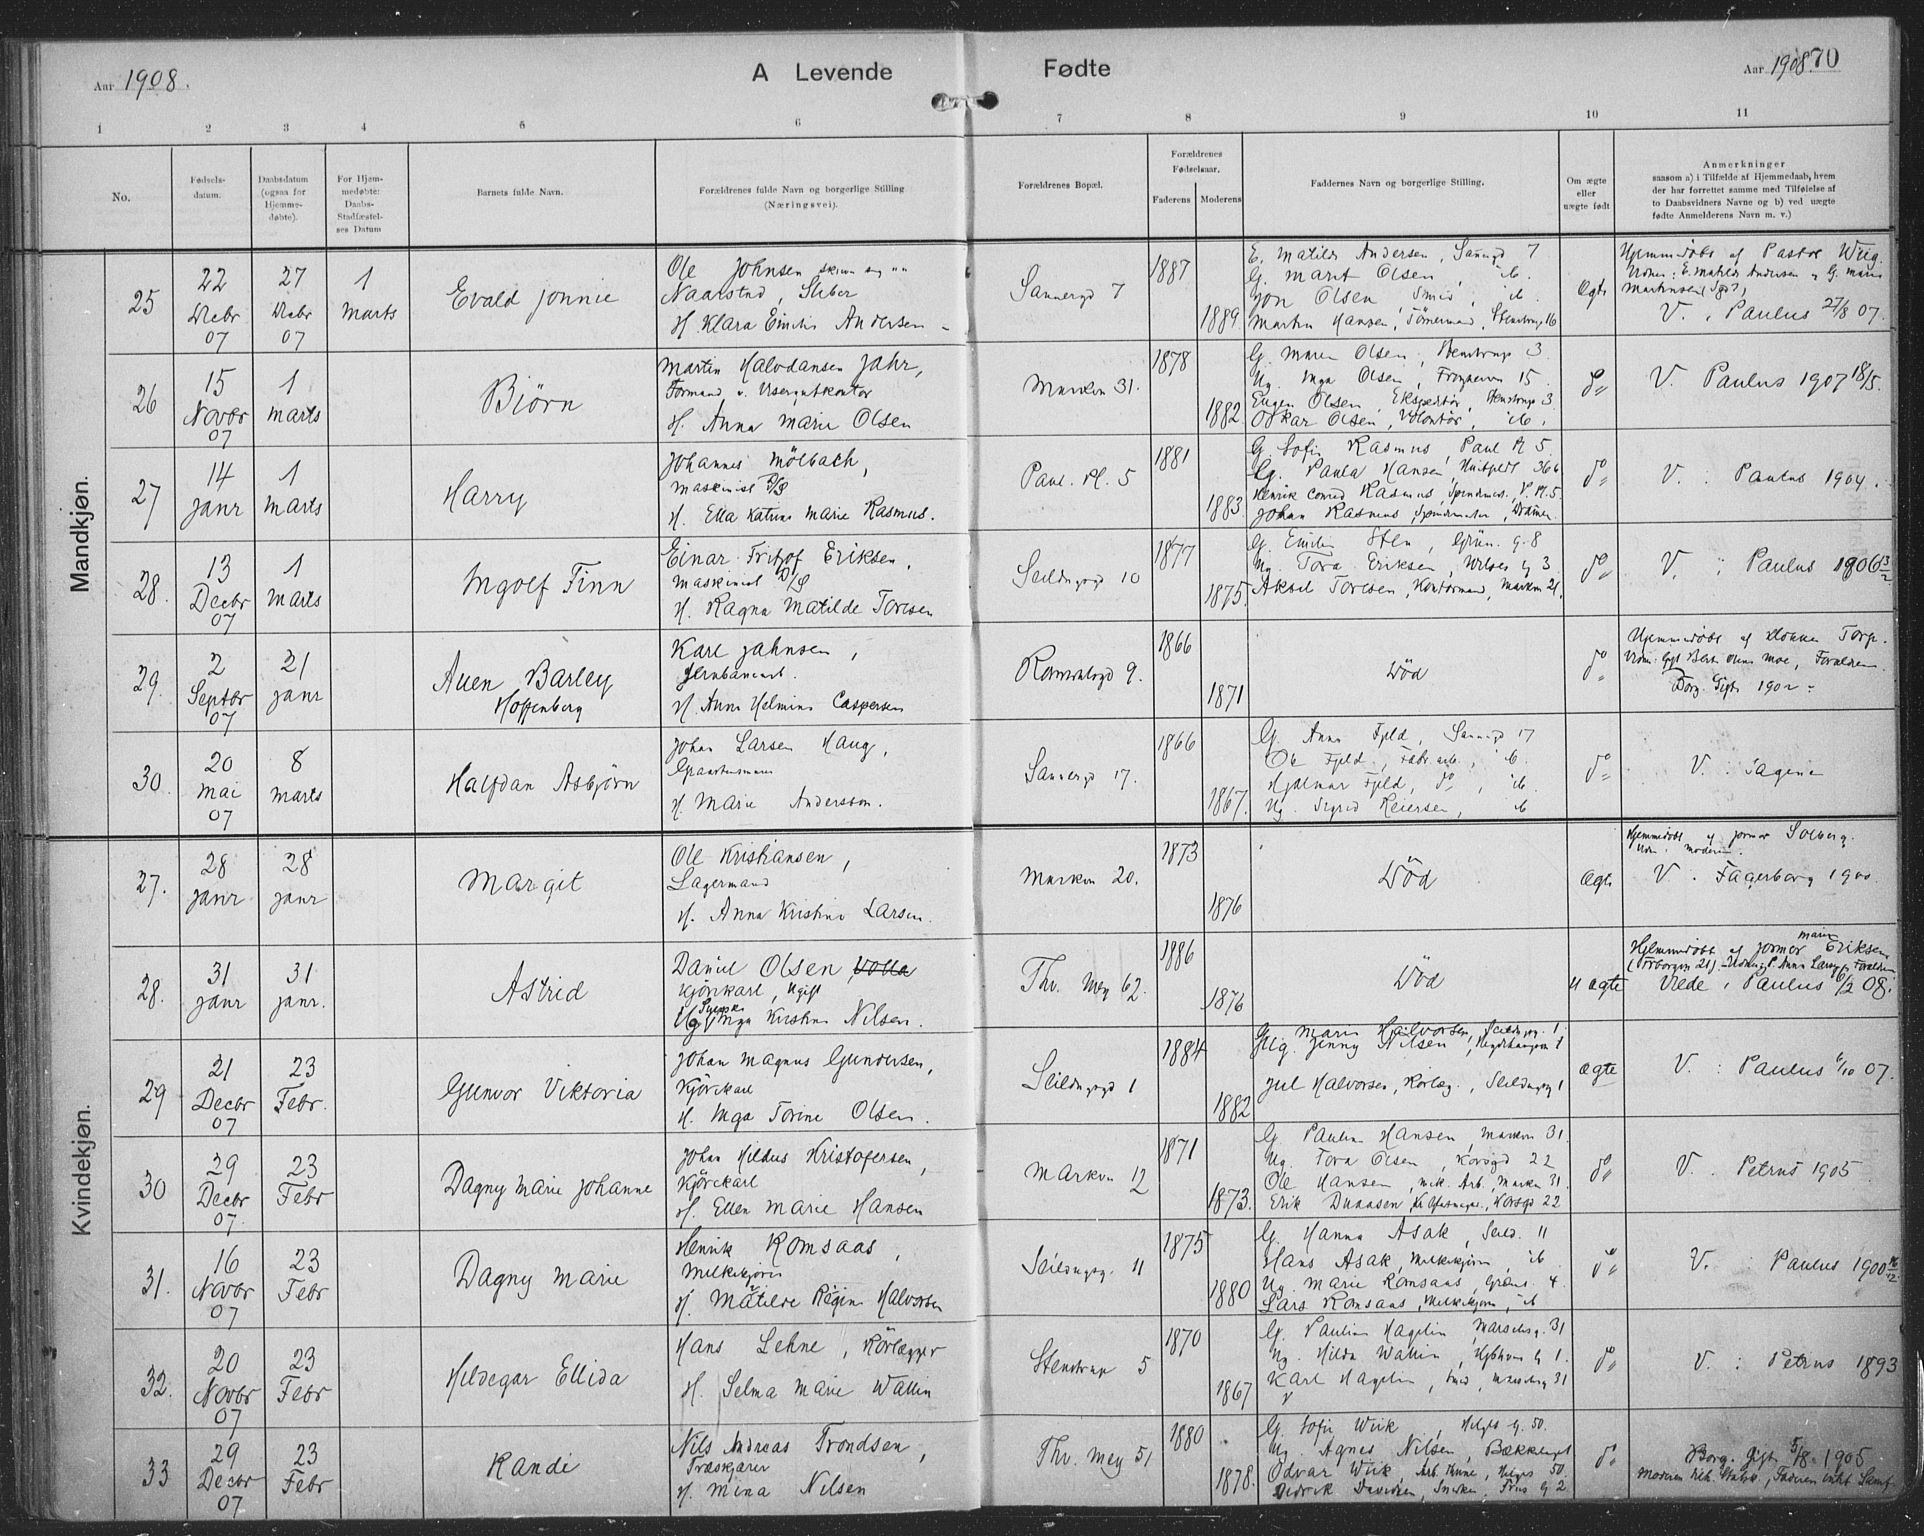 Aar 1908.
A Levende Fødte
Aar 1908 70
1 2 3 4 5 6 7 8 9 10 11
No.
Fødsels-
datum.
Daabsdatum
(ogsaa for
Hjemme-
døbte).
For Hjem-
medøbte:
Daabs-
Stadfæstel-
ses Datum
Barnets fulde Navn.
Forældrenes fulde Navn og borgerlige Stilling
(Næringsvei).
Forældrenes Bopæl.
Forældrenes
Fødselsaar.
Faderens Moderens
Faddernes Navn og borgerlige Stilling.
Om ægte
eller
uægte født
Anmerkninger
saasom a) i Tilfælde af Hjemmedaab, hvem
der har forrettet samme med Tilføielse af
to Daabsvidners Navne og b) ved uægte
fødte Anmelderens Navn m. v.)
Mandkjøn.
25
22
Decbr
07
27
Decbr
07
1
Marts
Evald Jonnie
Ole Johnsen
Naarstad, Sliber
H. Klara Emilie Andersen
Sannergd 7
1887
1889.
E. Matilde Andersen, Sannergd 7
G. Marit Olsen, ib.
Jon Olsen, Smed, ib
Martin Hansen, Tömermand, Stenstrupg 16
Ægte
Hjemmedøbt af Pastor Wiig.
V. Paulus 27/8 07.
26
15
Novbr
07
1
Marts
Biörn
Martin Halvdansen Jahr,
Formand v.
H. Anna Marie Olsen
Markvn 31.
1878
1882
G. Maren Olsen, Stenstrupg 3.
Ug. Inga Olsen, 15.
Eugen Olsen, Ekspeditør, Stenstrupg 3
Oskar Olsen, Volontør, ib.
do
V. Paulus 1907 18/5.
27
14
Janr
1
Marts
Harry
Johannes Mölbach,
Maskinist D/S
H. Ella Katrine Marie Rasmus.
Paul. Pl. 5
1881
1883.
G. Sofie Rasmus, Paul Pl 5.
Ug. Paula Hansen, Huitfeldt 36b
Henrik Conrad Rasmus, P. Pl. 5.
Johan Rasmus,
do
V. Paulus 1904.
28.
13
Decbr
07
1
Marts
Ingolf Finn
Einar Fritjof Eriksen,
Maskinist D/S
H. Ragna Matilde Toresen
Seildugsgd 10
1877
1875.
G. Emilie Sten, Grün. g. 8
Ug. Tora Eriksen, 3
Aksel Toresen, Kontormand, Markvn 21.
do
V. Paulus 1906 13/2
29.
2
Septbr
07
21
Janr
Auen Barley
Hoffenberg
Karl Jahnsen,
Jernbanearb.
H. Anne Helmine Caspersen
Romsdalsgd 9.
1866
1871
Död
do
Hjemmedøbt af Torp.
Borg. Gift 1902
30.
20
Mai
07
8
Marts
Halfdan Asbjörn
Johan Larsen Haug,
H. Marie Andersson.
Sannergd 17.
1866
1867.
G. Anna Fjeld, Sannergd 17
Ole Fjeld, Fabr. arb., ib.
Hjalmar Fjeld, do, ib
Ug. Sigrid Reiersen, ib
do
V. Sagene
Kvindekjøn.
27.
28
Janr
28
Janr
Margit
Ole Kristiansen,
Lagermand
H. Anna Kristine Larsen.
Markvn 20.
1873
1876
Död
Ægte
Hjemmedøbt af Jormor Solberg.
V. Fagerborg 1900.
28.
31
Janr
31
Janr.
Astrid
Daniel Olsen Volla
Kjörekarl, Ugift
Ug. Inga Kristine Nilsen.
Thv. Mey 62.
1886
1876
Död
U ægte
Hjemmedøbt af Jormor Marie Eriksen
Viede i Paulus 6/2 08.
29
21
Decbr
07
23
Febr.
Gunvor Viktoria
Johan Magnus Gundersen,
Kjörekarl
H. Inga Torine Olsen.
Seildugsgd 1
1884
1882
G. Marie Halvorsen, Seildugsg. 1
Ug. Jenny Nilsen, 1
Jul Halvorsen, Rörlæg., Seildugsg 1
Ægte
V. Paulus 6/10 07.
30
29
Decbr
07.
23
Febr
Dagny Marie Johanne
Johan Hildus Kristofersen,
Kjörekarl
H. Ellen Marie Hansen
Markvn 12
1871
1873.
G. Pauline Hansen, Markvn 31.
Ug. Tora Olsen, Korsgd 22
Ole Hansen, mek. Arb., Markvn 31.
Erik Korsgd 22
do
V. Petrus 1905.
31.
16
Novbr
07
23
Febr
Dagny Marie
Henrik Romsaas,
Melkekjörer
H. Matilde Regine Halvorsen
Seildugsg. 11
1875
1880
G. Hanna Asak, Seild. 11
Hans Asak, Melkekjører, ib
Ug. Marie Romsaas, Grøns. 4.
Lars Romsaas, Melkekjører, ib
do
V. Paulus 1900 16/12
32.
20
Novbr
07
23
Febr
Hildegar Ellida
Hans Lehne, Rörlægger
H. Selma Marie Wallin
Stenstrupg 5
1870
1867
G. Pauline Hagelin, Marselisg. 31
Ug. Hilda Wallin, 1.
Karl Hagelin, Smed, Marselisg 31
do
V. Petrus 1893
33
29
Decbr
07
23
Febr
Randi
Nils Andreas Trondsen,
Træskjærer
H. Mina Nilsen
Thv. Mey 51
1880
1878.
G. Sofie Wiik, Helgs g. 50.
Ug. Agnes Nilsen,
Odvar Wiik, Helges 50.
Didrik Davidsen, Snekker, g 2
do
Borg. gift 5/8 1905